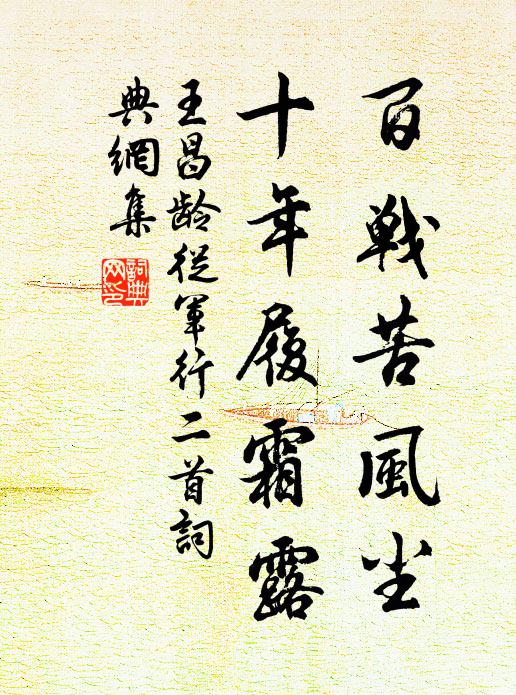 百戦苦風尘
十年履霜露
王昌龄從軍行二首詞
典網集
詞典
网印